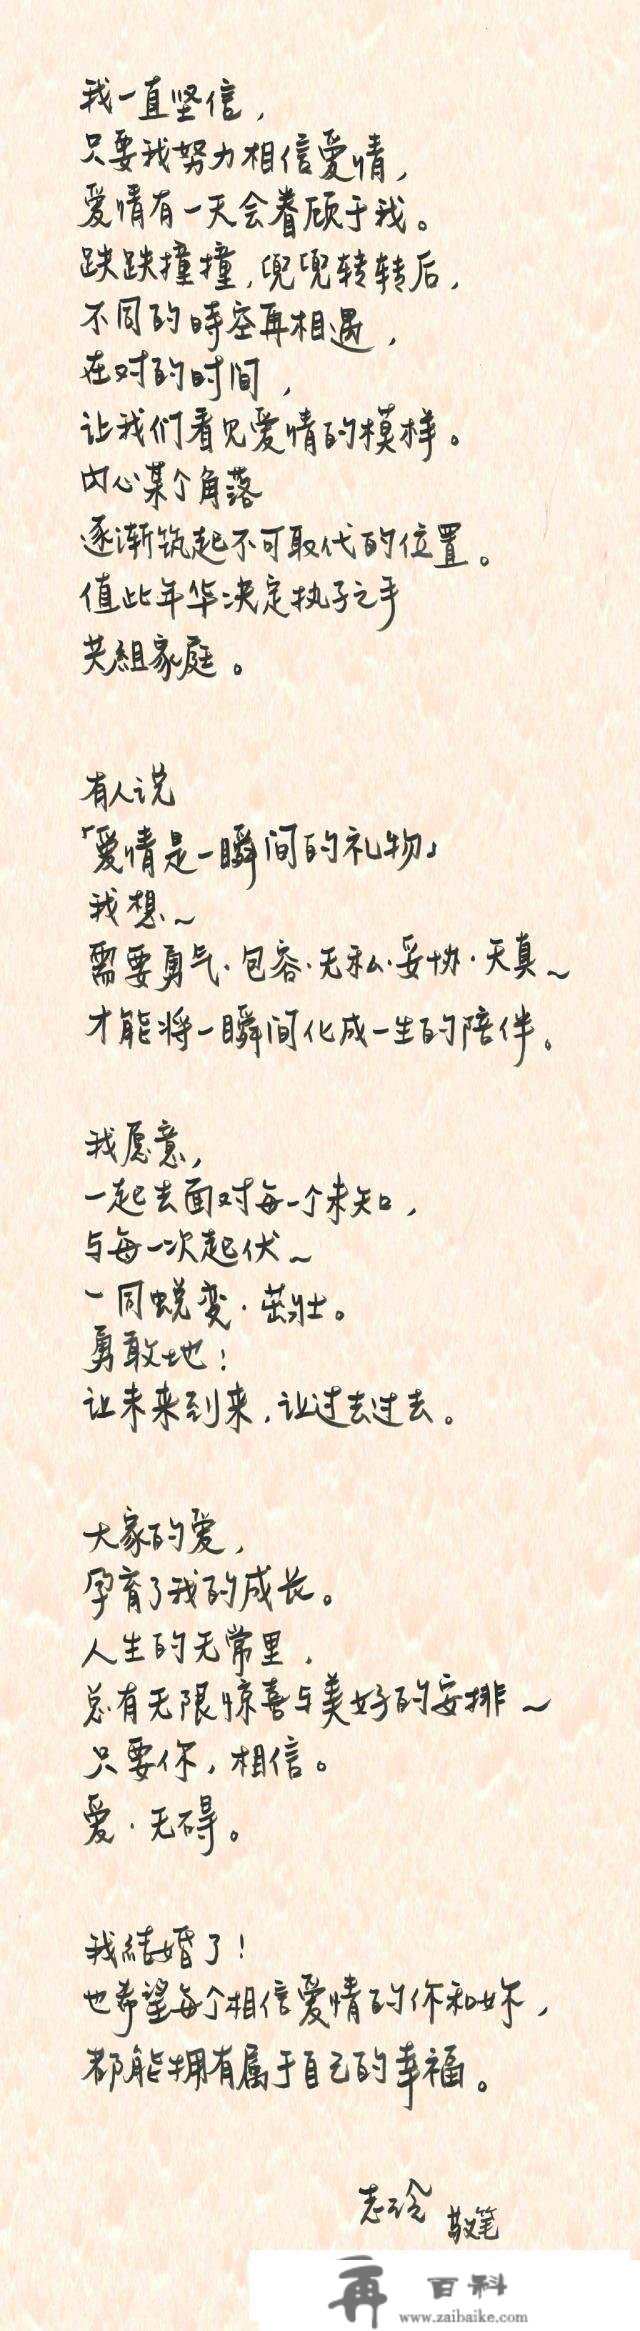 我一直坚信，
只要我努力相信爱情，
爱情有一天会眷顾于我。
跌跌撞撞，兜兜转转后，
不同的時空再相遇，
在对的时间，
让我们看见爱情的模样。
内心某个角落
逐渐筑起不可取代的位置。
值此年华决定执子之手
共組家庭。
有人说
「爱情是一瞬间的礼物」
我想~
需要勇气·包容·无私·妥协·天真~
才能将一瞬间化成一生的陪伴。
我愿意，
一起去面对每一个未知，
与每一次起伏~
一同蜕变·茁壮。
勇敢地：
让未来到来，让过去过去。
大家的爱，
孕育了我的成长。
人生的无常里，
总有无限惊喜与美好的安排~
只要你，相信。
爱·无碍。
我結婚了！
也希望每个相信爱情的你和妳，
都能拥有属于自己的幸福。
志玲 敬笔
再 百科
www.zaibaike.com